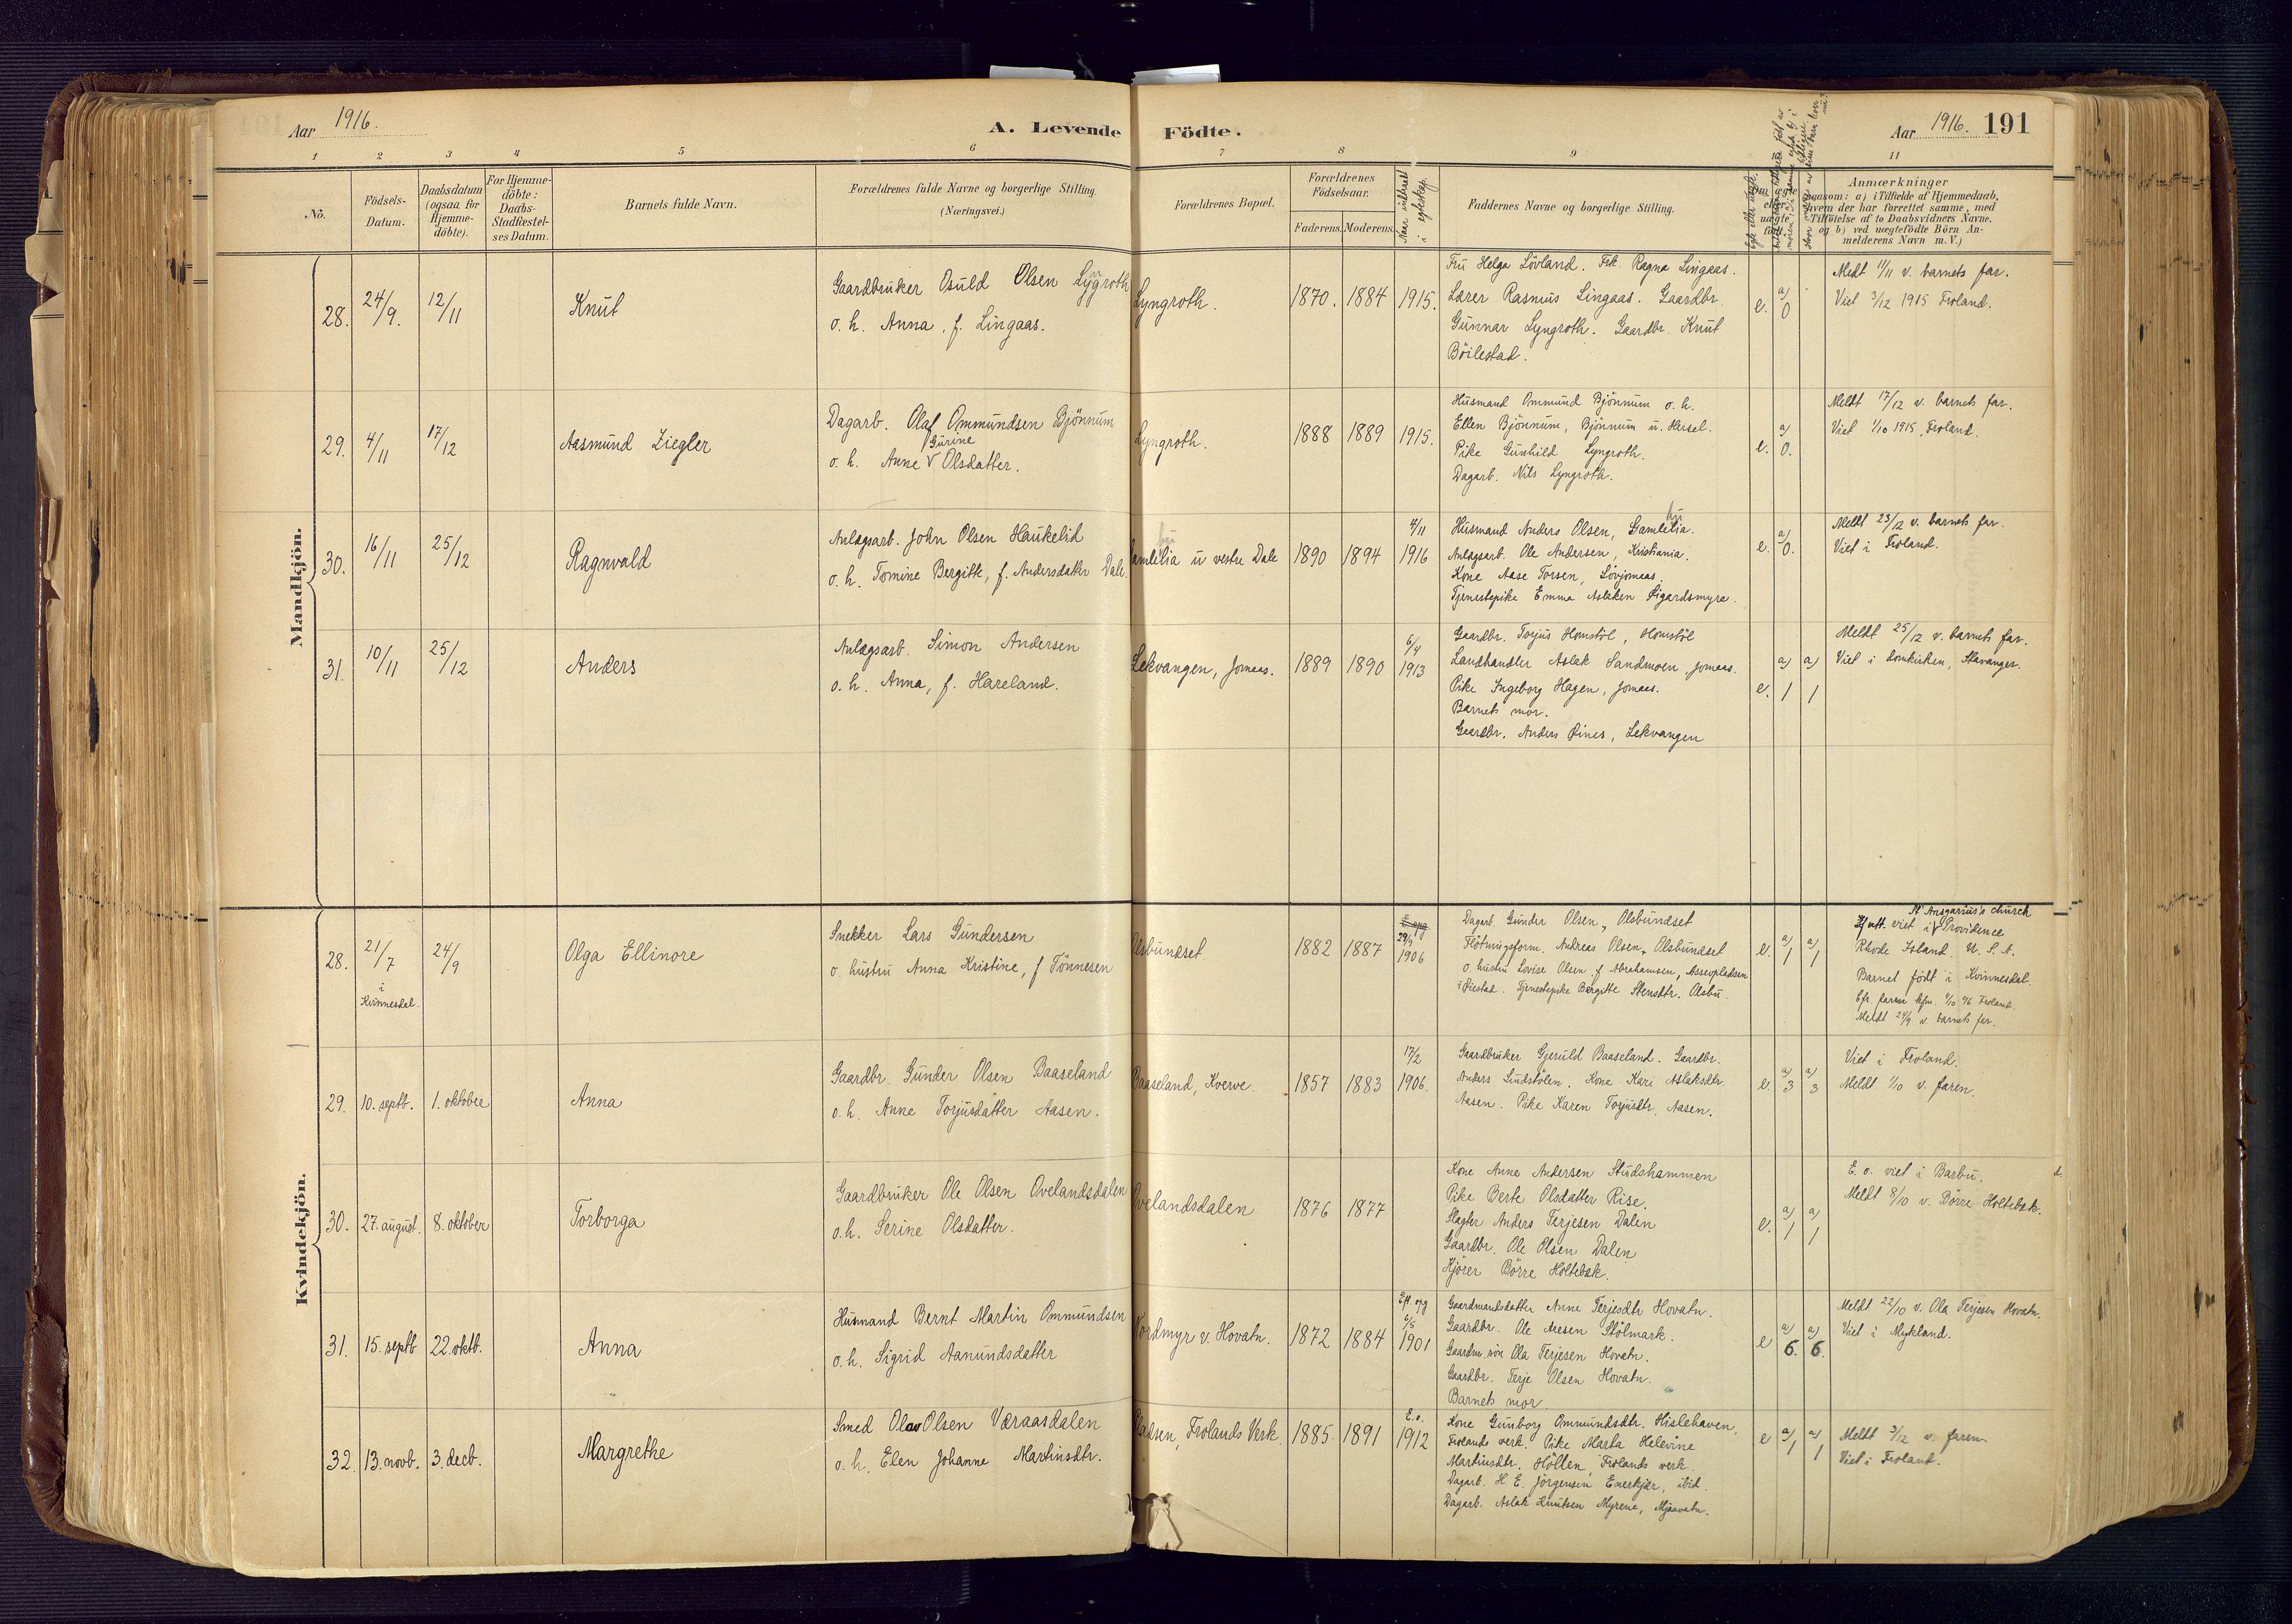 Aar 1916.
A. Levende Födte.
Aar 1916. 191
1 2 3 4 5 6 7 8 9 11
No.
Födsels-
Datum.
Daabsdatum
(ogsaa for
Hjemme-
döbte).
For Hjemme-
döbte:
Daabs-
Stadfæstel-
ses Datum.
Barnets fulde Navn.
Forældrenes fulde Navne og borgerlige Stilling.
(Næringsvei.)
Forældrenes Bopæl.
Forældrenes
Födselsaar.
Faderens. Moderens.
Naar indtraadt
i egteskap.
Faddernes Navne og borgerlige Stilling.
Anmærkninger
saasom: a) i Tilfælde af Hjemmedaab,
hvem der har forrettet samme, med
Tilföielse af to Daabsvidners Navne,
og b) ved uægtefödte Börn An-
melderens Navn m. V.)
Mandkjön.
28. 24/9. 12/11
Knut
Gaardbruker Osuld Olsen Lyngroth
o. h. Anna, f. Lingaas.
Lyngroth.
1870. 1884 1915.
Fru Helga Lövland. Frk. Ragna Lingaas.
Lærer Rasmus Lingaas. Gaardbr.
Gunnar Lyngroth. Gaardbr. Knut
Böilestad.
e. a) 0
Meldt 11/11 v. barnets far.
Viet 3/12 1915 Froland.
29. 4/11 17/12
Aasmund Ziegler
Dagarb. Olaf Ommundsen Bjönnum
Gurine
o. h. Anne V Olsdatter.
Lyngroth.
1888 1889 1915.
Husmand Ommund Bjönnum o. h.
Ellen Bjönnum, Bjönnum u. Hersel.
Pike Gunhild Lyngroth.
Dagarb. Nils Lyngroth.
e. a) 0.
Meldt 17/12 v. barnets far.
Viet 1/10 1915, Froland.
30. 16/11 25/12
Ragnvald
Anlægsarb. John Olsen Haukelid
o. h. Tomine Bergitte, f. Andersdatter Dale.
Gamlelia u vestre Dale
1890 1894 4/11 1916
Husmand Anders Olsen, Gamlelia.
Anlægsarb. Ole Andersen, Kristiania.
Kone Aase Torsen, Lövjomaas.
Tjenestepike Emma Asleken Sigardsmyra.
e. a) 0.
Meldt 23/12 v. barnets far.
Viet i Froland.
31. 10/11 25/12
Anders
Anlægsarb. Simon Andersen
o. h. Anna, f. Hareland.
Lekvangen, Jomaas.
1889 1890 6/4 1913
Gaardbr. Torjus Homstöl, Homstöl
Landhandler Aslak Sandmoen, Jomaas.
Pike Ingeborg Hagen, Jomaas.
Barnets mor.
Gaardbr. Anders Rines, Lekvangen
e. a) 1 a) 1
Meldt 25/12 v. barnets far.
Viet i domkirken, Stavanger.
Kvindekjön.
28. 21/7 24/9
i
Kvinnesdal.
Olga Ellinore
Snekker Lars Gundersen
o. hustru Anna Kristine, f Tönnesen
Olsbundset.
1882 1887 29/9 1906
Dagarb. Gunder Olsen, Olsbundset
Flötningsform. Andreas Olsen, Olsbundset
o. hustru Lovise Olsen f. Abrahamsen, Assevpladsen
Tjenestepike Bergitte Stensdtr. Olsbu.
e. a) 1 a) 1
St. Ansgarius's church
viet i V Providence
Rhode Island. U. S. A.
Barnet födt i Kvinnesdal.
Meldt 24/9 v. barnets far.
29. 10. septb. 1. oktober
Anna
Gaardbr. Gunder Olsen Baaseland
o. h. Anne Torjusdatter Aasen.
Baaseland, Kverve.
1857 1883 17/2 1906.
Gaardbruker Gjeruld Baaseland. Gaardbr.
Anders Lindstölen. Kone Kari Aslaksdtr.
Aasen. Pike Karen Torjusdtr. Aasen.
e. a) 3 a) 3
Viet i Froland.
Meldt 1/10 v. faren.
30. 27. august. 8. oktober
Torborga
Gaardbruker Ole Olsen Ovelandsdalen
o. h. Serine Olsdatter.
Ovelandsdalen
1876 1877
Kone Anne Andersen Studshammen
Pike Berte Olsdatter Rise.
Slagter Anders Terjesen Dalen
Gaardbr. Ole Olsen Dalen
Kjörer Börre Holtebæk.
e. a) 1 a) 1
E. o. viet i Barbu.
Meldt 8/10 v. Börre Holtebæk.
31. 15. septb 22. oktb.
Anna
Husmand Bernt Martin Ommundsen
o. h. Sigrid Aanundsdatter
Nordmyr v. Hovatn.
1872 1884 Eft opg 1901
Gaardmandsdatter Anne Terjesdtr Hovatn.
Gaardbr. Ole Aresen Stölmark.
Gaardm. sön Ola Terjesen Hovatn.
Gaardbr. Terje Olsen Hovatn.
Barnets mor.
e a) 6. a) 6.
Meldt 22/10 v. Ola Terjesen Hovatn.
Viet i Mykland.
32. 13. novb. 3. decb.
Margrethe
Smed Olav Olsen Væraasdalen
o. h. Elen Johanne Martinsdtr.
Pladsen, Frolands Verk.
1885. 1891 E. o. 1912
Kone Gunborg Ommundsdtr. Hislehaven,
Frolands verk. Pike Marta Helevine
Martinsdtr. Höllen, Frolands verk.
Dagarb. H. E. Jörgensen Enerkjær, ibid.
Dagarb. Aslak Knutsen Myrene, Mjaavatn.
e a) 1 a) 1
Meldt 3/12 v. faren
Viet i Froland.